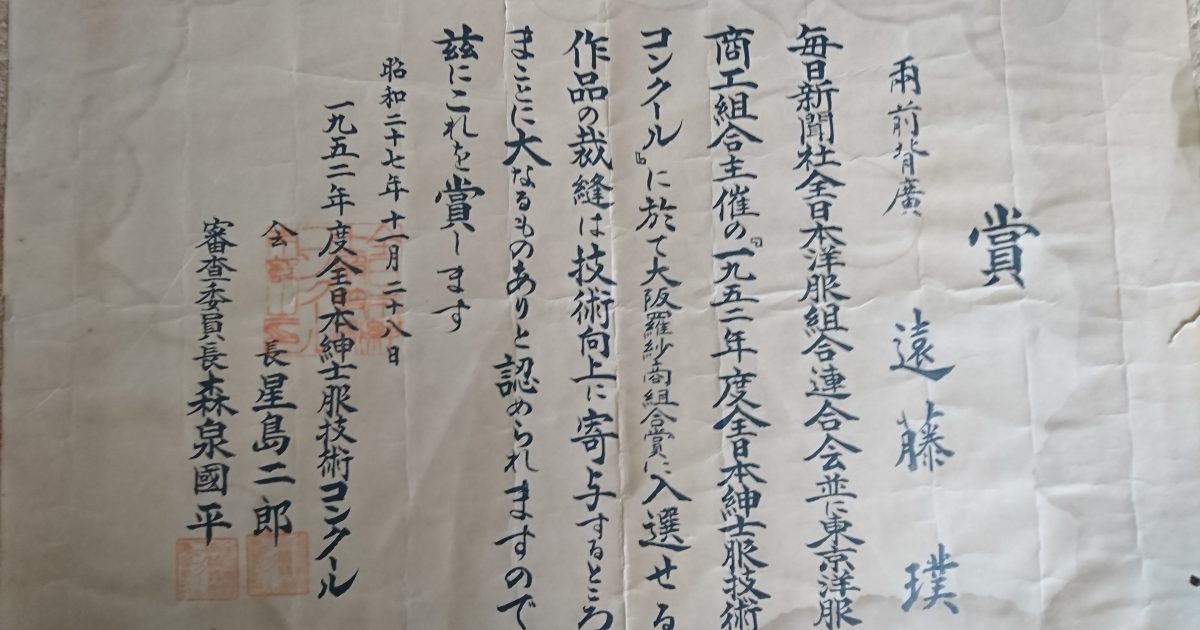 賞
両前背廣
遠藤璞
毎日新聞社全日本洋服組合連合会並に東京洋服
商工組合主催の『一九五二年度全日本紳士服技術
コンクール』に於て大阪羅紗商組合賞に入選せる
作品の裁縫は技術向上に寄与するところ
まことに大なるものありと認められますので
茲にこれを賞します
昭和二十七年十一月二十八日
一九五二年度全日本紳士服技術コンクール
会長星島二郎
審査委員長森泉國平